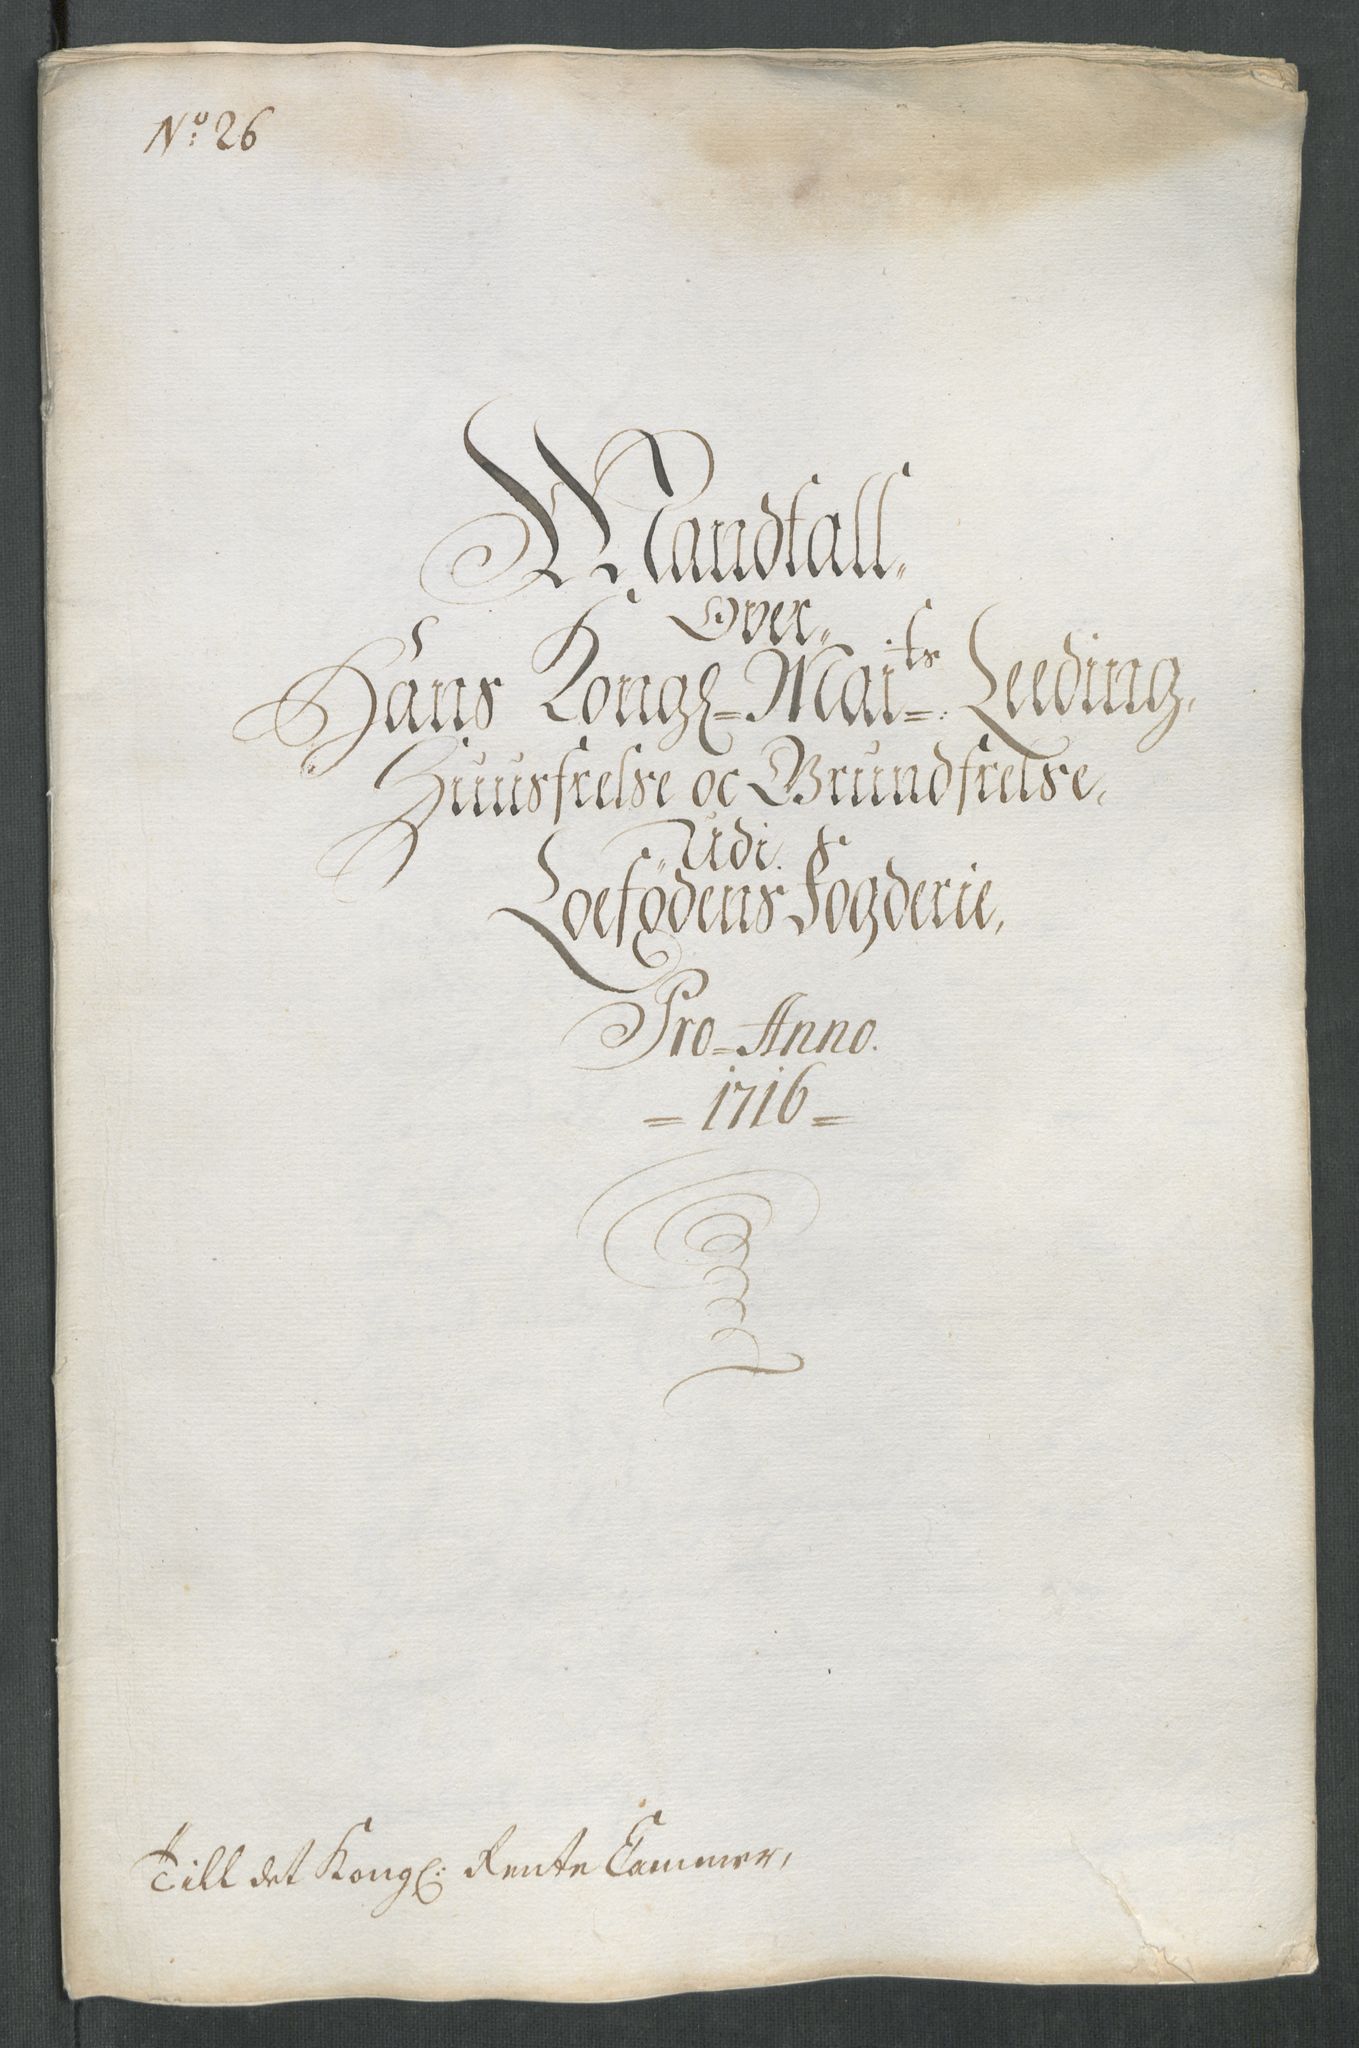 No: 26
Mandtall,,
Over,,
Hans Kongl= Mai=ts: Leeding,
Huusfrelse oc Grundfrelse,
Udi
Loefodens Fogderie,
Pro=Anno.
=1716=
Till det Kongl: Rente Cammer,